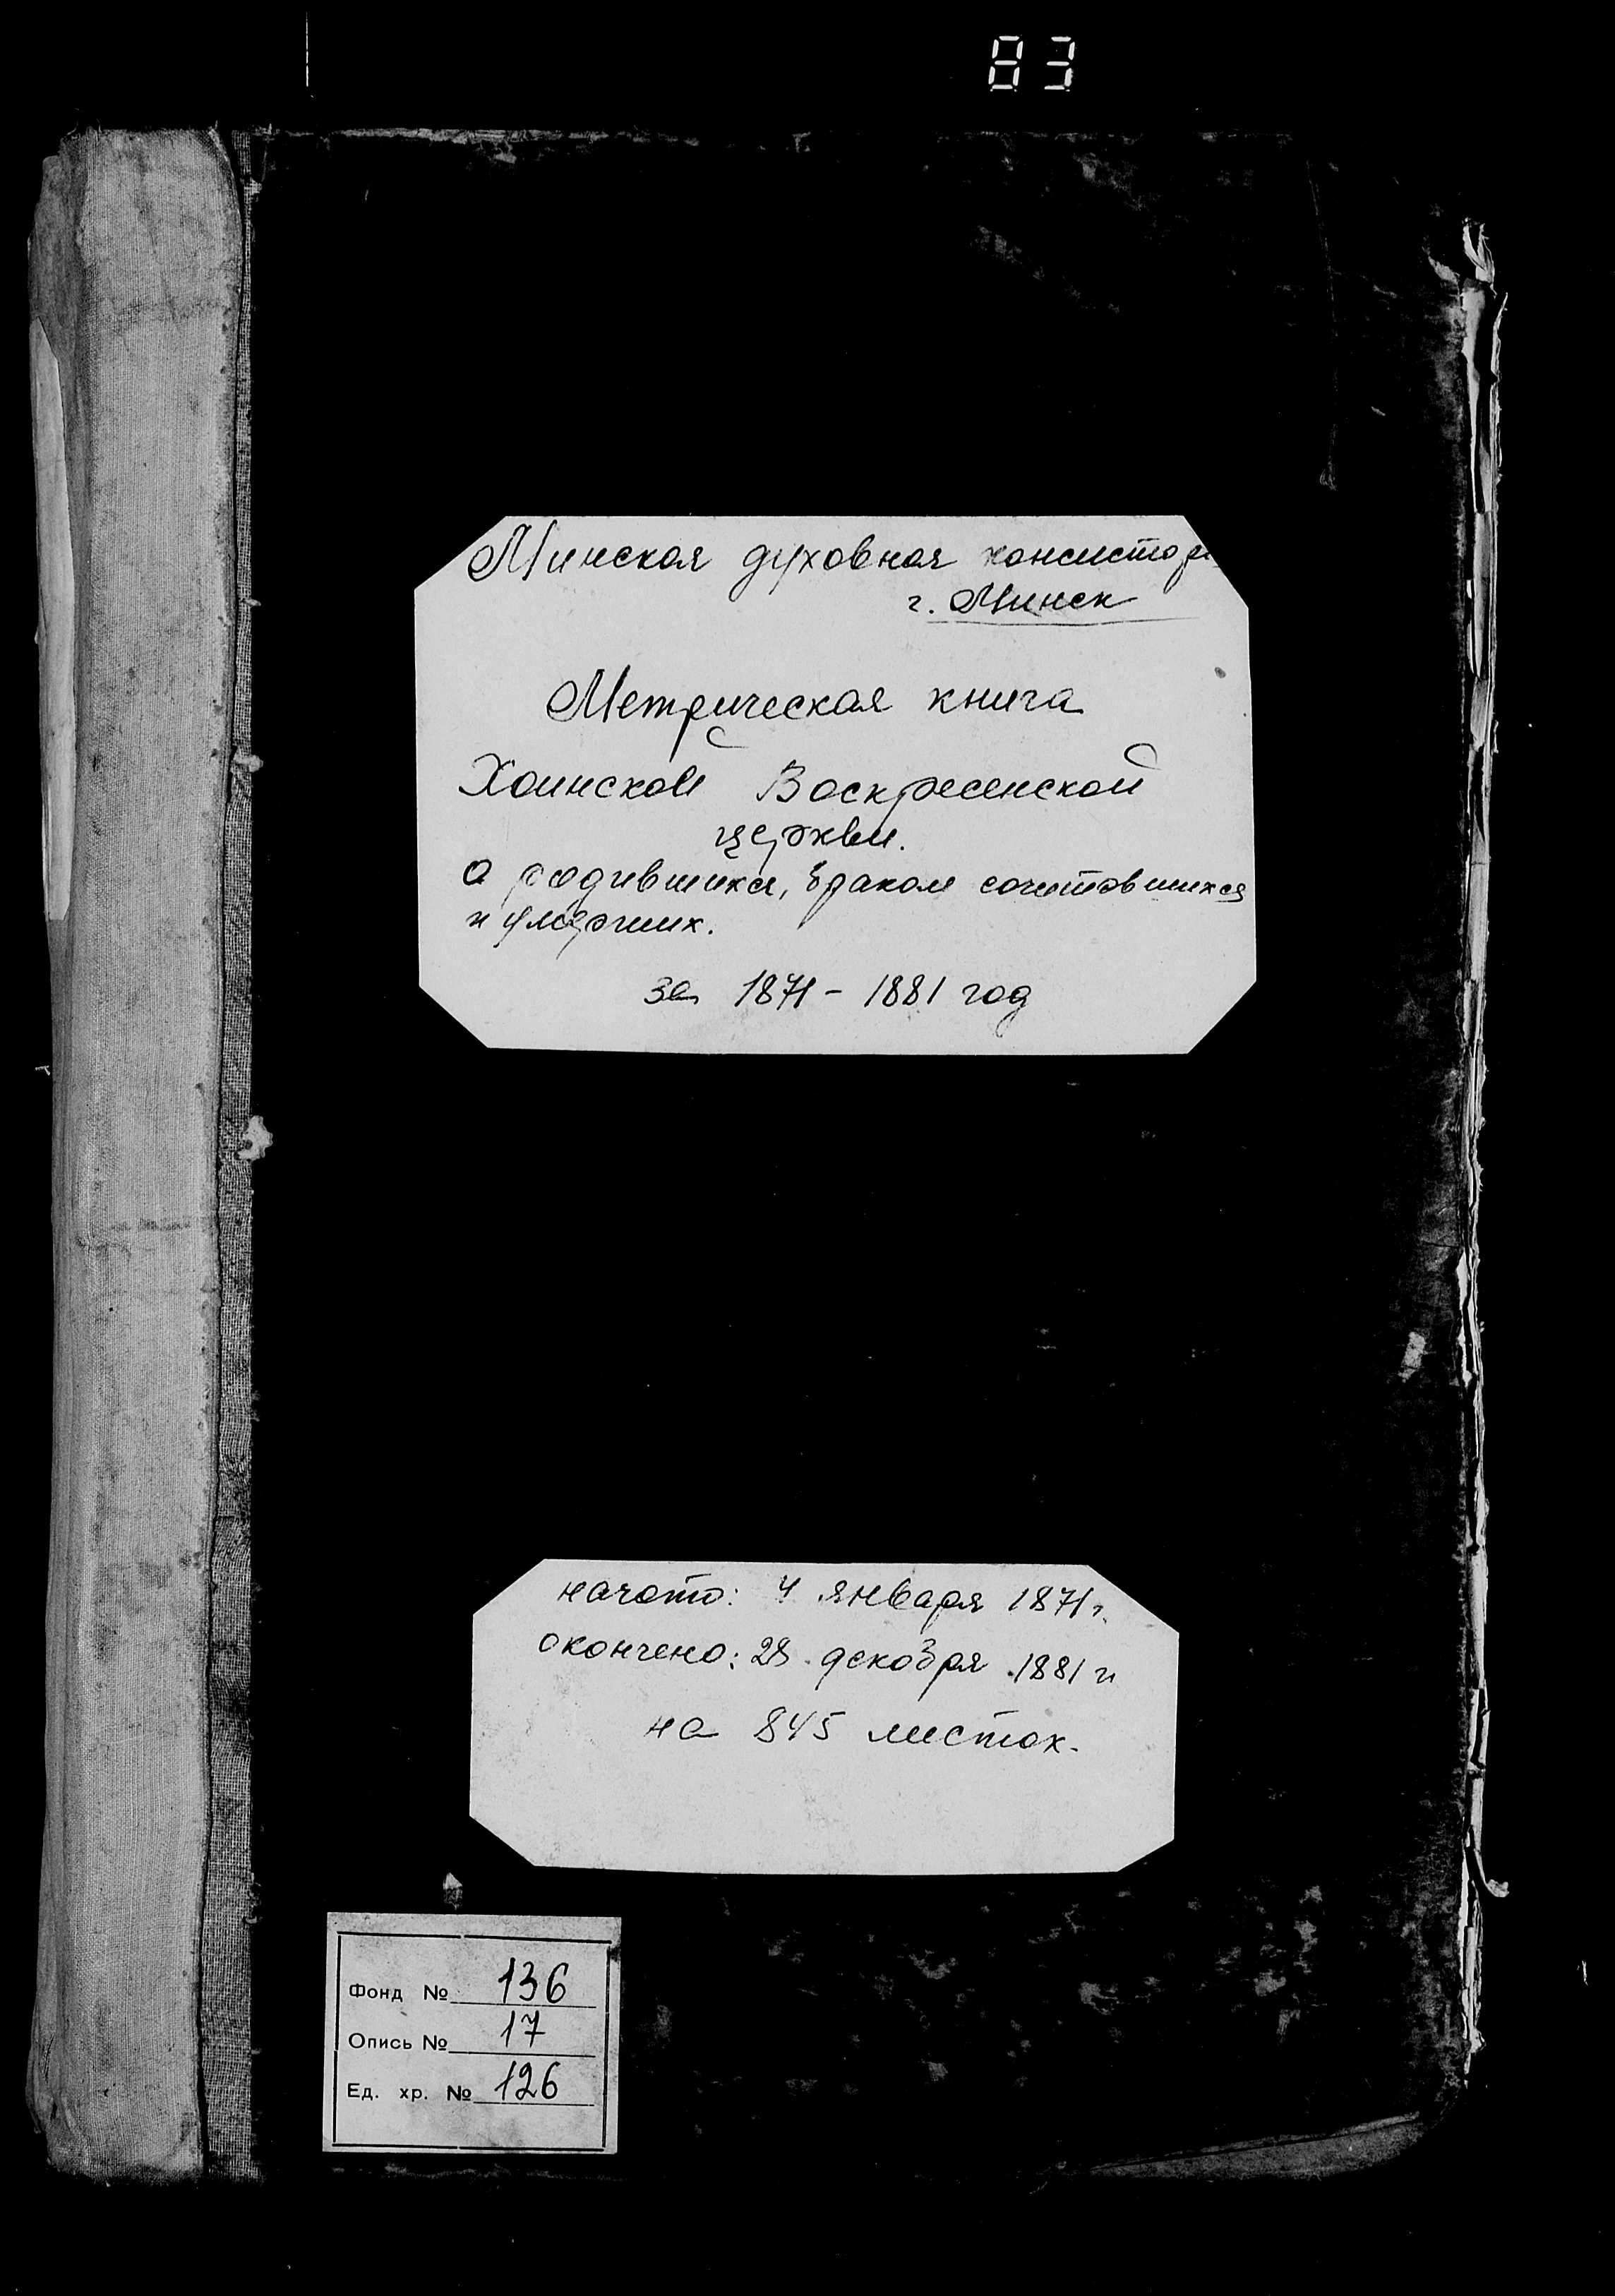 83
Минская духовная консистор
г. Минск
Метрическая книга
Хоинской Воскресенской
церкви.
о родившихся, браком сочетавшихся
и умерших.
за 1871 - 1881 год
начато: 4 января 1871 г.
окончено: 28 декабря 1881 г.
на 845 листах.
Фонд № 136
Опись № 17
Ед. хр. № 126